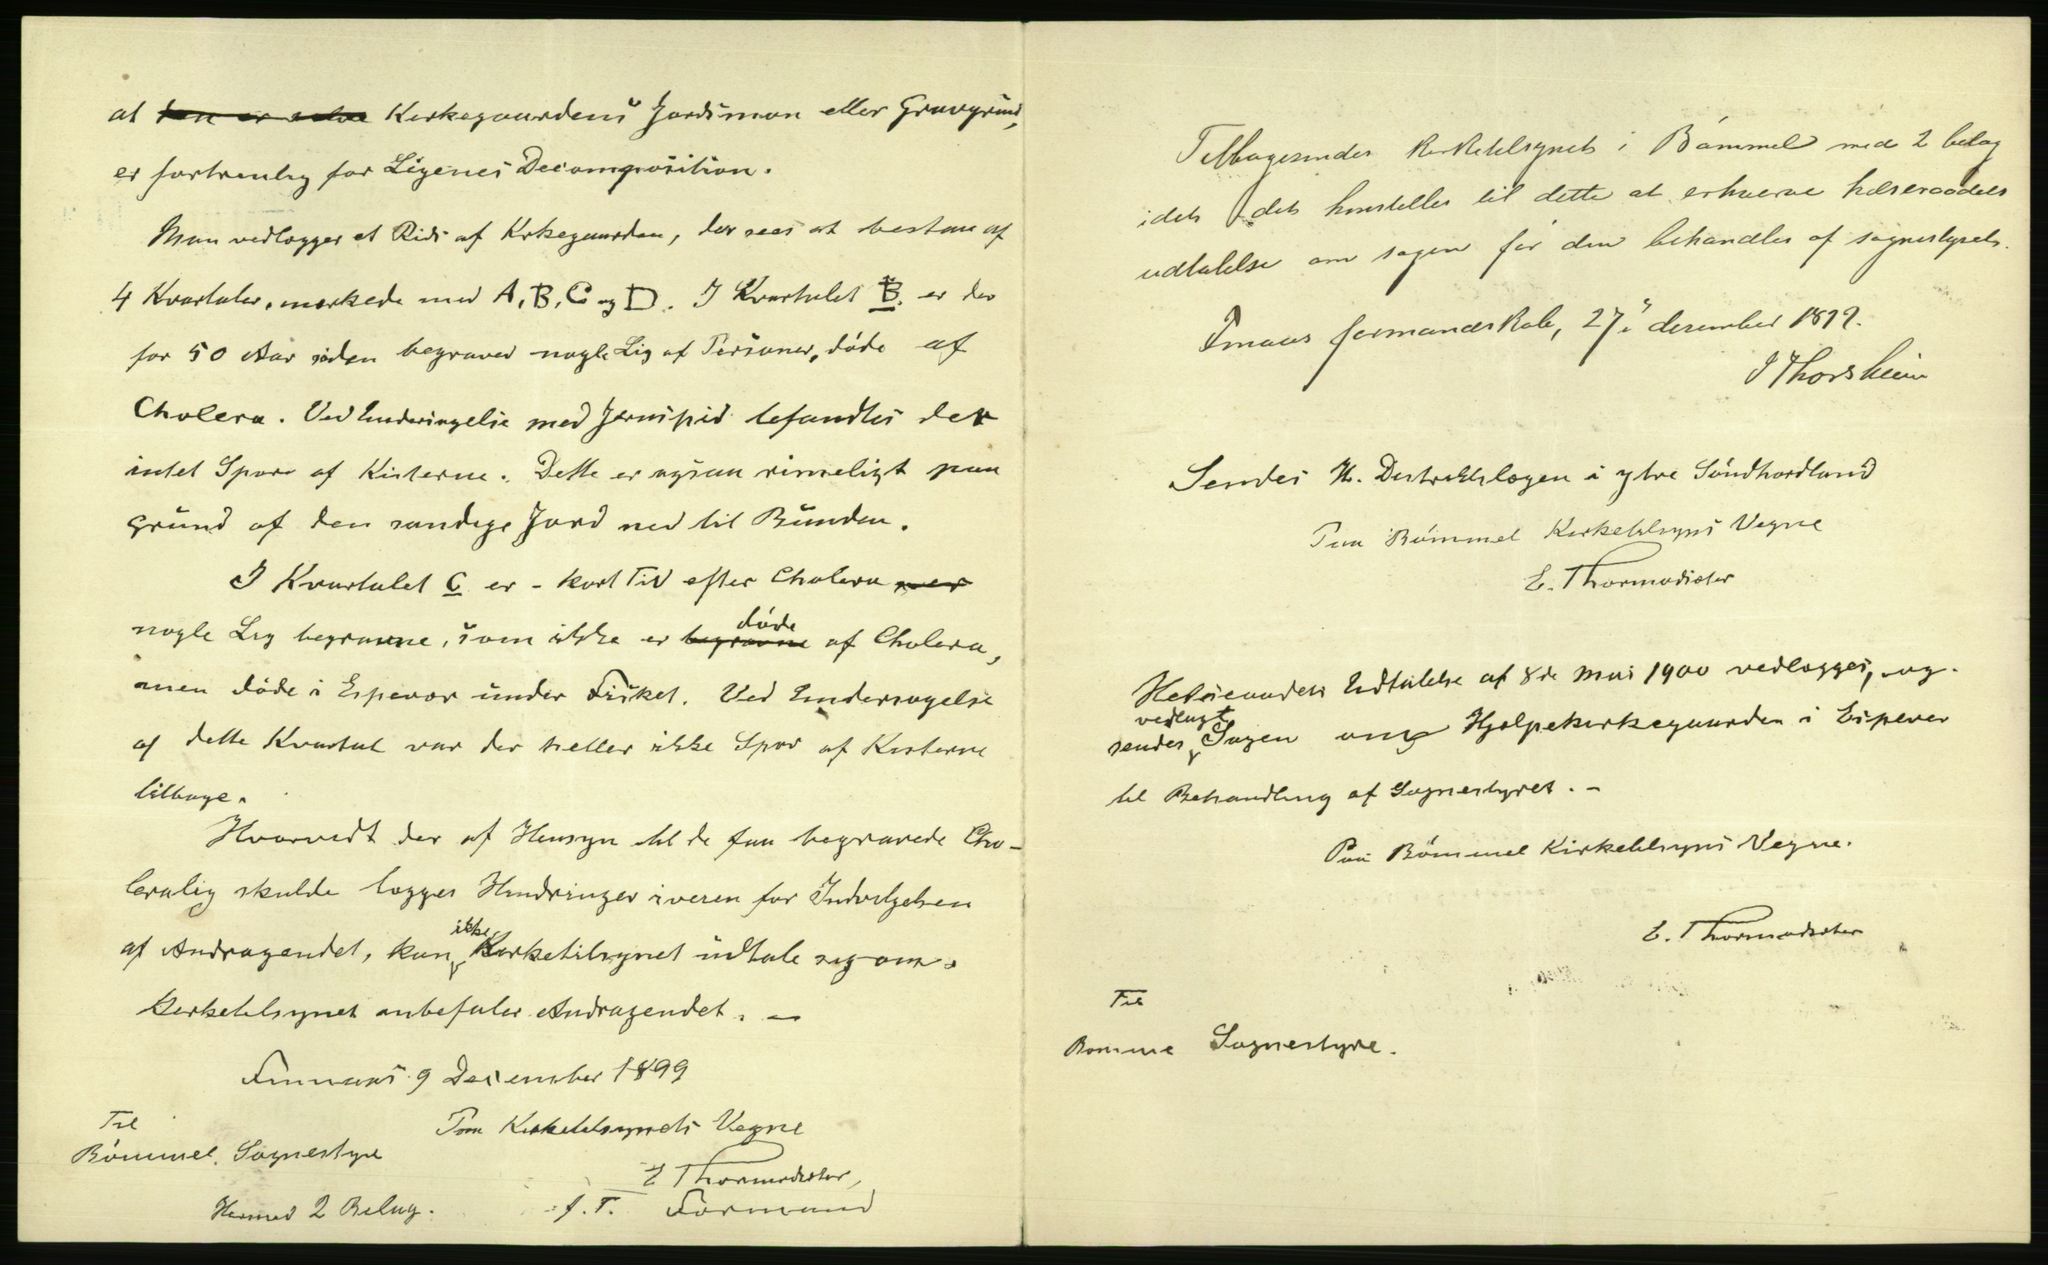 at den er selve Kirkegaardens Jordsmon eller Gravgrund,
er fortrinlig for Ligenes Decomposition.
Man vedlægger et Rids af Kirkegaarden, der sees at bestaa af
4 Kvartaler, mærkede med A, B, C og D. I Kvartalet B. er der
for 50 Aar siden begraved nogle Lig af Personer, døde af
Cholera. Ved Undersøgelse med Jernspid befandtes der
intet Spor af Kisterne. Dette er ogsaa rimeligt paa
Grund af den sandige Jord ned til Bunden.
I Kvartalet C er - kort Tid efter Cholera
nogle Lig begravne, som ikke er begravne døde af Cholera,
men døde i Espevær under Fisket. Ved Undersøgelse
af dette Kvartal var der heller ikke Spor af Kisterne
tilbage.
Hvorvidt der af Hensyn til de faa begravede Cho-
leralig skulde lægges Hindringer iveien for Indvilgelsen
af Andragendet, kan ikke Kirketilsynet udtale sig om.
Kirketilsynet anbefaler Andragendet. -
Finnaas 9 December 1899
Til
Paa Kirketilsynets Vegne
Bømmel Sognestyre
E Thormodsæter,
f. T. Formand
Hermed 2 Belag.
Tilbagesendes kirketilsynet i Bømmel med 2 belag
idet det henstilles til dette at erhverve helseraadets
udtalelse om sagen før den behandles af sognestyret.
Finnaas formandskab, 27/12 desember 1899.
J Thorsheim
Sendes Hr. Distriktslægen i ytre Søndhordland
Paa Bømmel Kirketilsyns Vegne
E. Thormodsæter
Helseraadets Udtalelse af 8de Mai 1900 vedlægges, og
sendes vedlagt Sagen om Hjælpekirkegaarden i Espevær
til Behandling af Sognestyret. -
Paa Bømmel Kirketilsyns Vegne.
E. Thormodsæter
Til
Bømme Sognestyre.